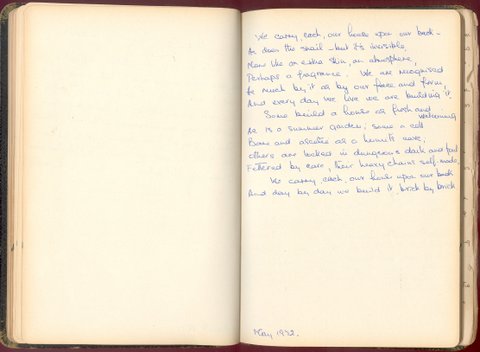 We carry, each, our house upon our back -
As does the snail - but it's invisible,
More like an extra skin, an atmosphere,
Perhaps a fragrance. We are recognised
As much by it as by our face and form,
And every day we live we are building it.
Some build a house as fresh and welcoming
As is a summer garden, some a cell
Bare and ascetic as a hermit's cave,
Others are locked in dungeons dark and foul
Fettered by care, their heavy chains self-made.
We carry each, our house upon our back
And day by day we build it, brick by brick
May 1932.